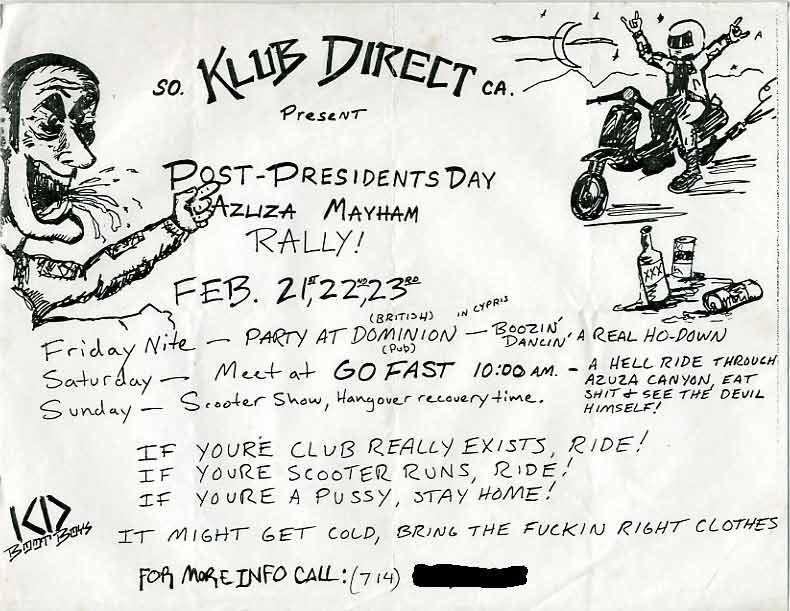 SO. KLUB DIRECT CA.
PRESENT
POST-PRESIDENTS DAY
AZUZA MAYHAM
RALLY!
FEB. 21ST, 22ND, 23RD
Friday Nite — PARTY AT DOMINION (BRITISH) (PUB) IN CYPRIS — BOOZIN' DANCIN' A REAL HO-DOWN
Saturday — Meet at GO FAST 10:00 AM. – A HELL RIDE THROUGH
AZUZA CANYON, EAT
SHIT & SEE THE DEVIL
HIMSELF!
Sunday — Scooter Show, Hangover recovery time.
XXX
IF YOUR'E CLUB REALLY EXISTS, RIDE!
IF YOURE SCOOTER RUNS, RIDE!
IF YOU'RE A PUSSY, STAY HOME!
KD
BOOT BOYS
IT MIGHT GET COLD, BRING THE FUCKIN RIGHT CLOTHES
FOR MORE INFO CALL: (714)